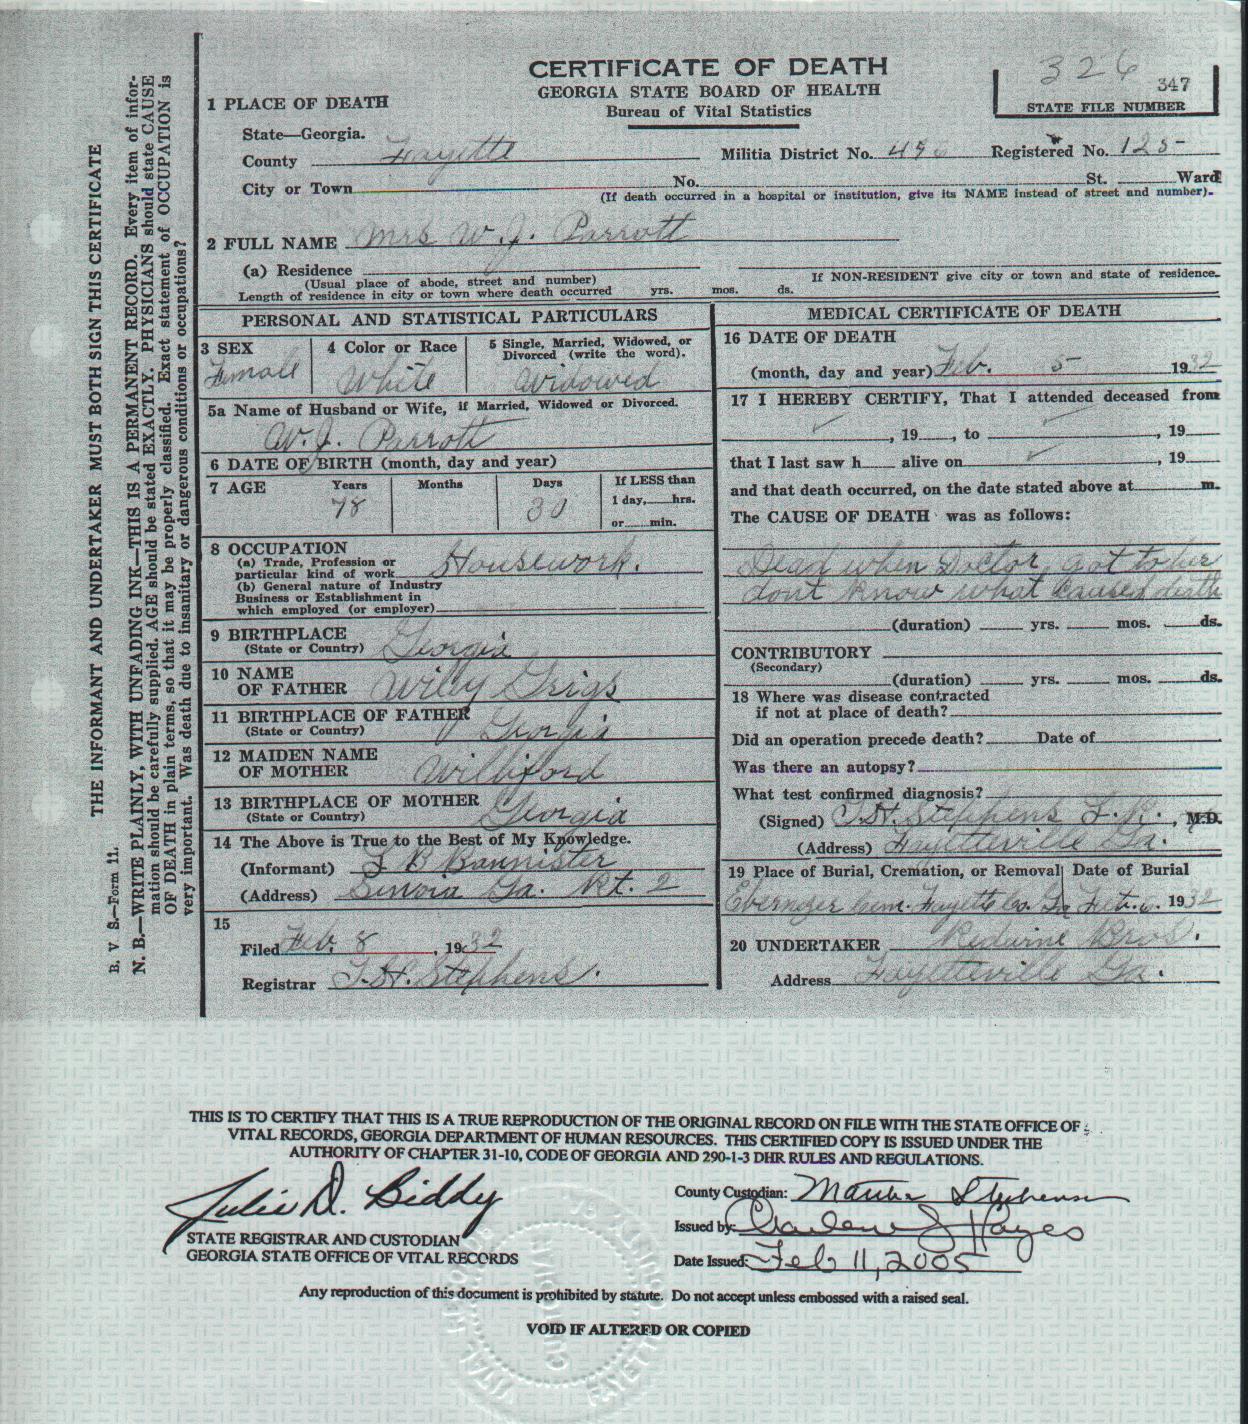 CERTIFICATE OF DEATH
GEORGIA STATE BOARD OF HEALTH
Bureau of Vital Statistics
326
347
STATE FILE NUMBER
1 PLACE OF DEATH
State—Georgia.
County Fayette Militia District No. 496 Registered No. 125
City or Town No. St. Ward
(If death occurred in a hospital or institution, give its NAME instead of street and number).
2 FULL NAME Mrs W. J. Parrott
(a) Residence
(Usual place of abode, street and number)
If NON-RESIDENT give city or town and state of residence.
Length of residence in city or town where death occurred yrs. mos. ds.
PERSONAL AND STATISTICAL PARTICULARS
3 SEX
Female
4 Color or Race
White
5 Single, Married, Widowed, or
Divorced (write the word).
Widowed
5a Name of Husband or Wife, if Married, Widowed or Divorced.
W. J. Parrott
6 DATE OF BIRTH (month, day and year)
7 AGE
Years
78
Months
Days
30
If LESS than
1 day, hrs.
or min.
8 OCCUPATION
(a) Trade, Profession or
particular kind of work Housework.
(b) General nature of Industry
Business or Establishment in
which employed (or employer)
9 BIRTHPLACE
(State or Country) Georgia
10 NAME
OF FATHER Wiley Grigs
11 BIRTHPLACE OF FATHER
(State or Country) Georgia
12 MAIDEN NAME
OF MOTHER Williford
13 BIRTHPLACE OF MOTHER
(State or Country) Georgia
14 The Above is True to the Best of My Knowledge.
(Informant) B Bannister
(Address) Senoia Ga. Rt. 2
15
Filed Feb. 8, 1932
Registrar T. H. Stephens.
MEDICAL CERTIFICATE OF DEATH
16 DATE OF DEATH
(month, day and year) Feb. 5 1932
17 I HEREBY CERTIFY, That I attended deceased from
, 19 , to , 19
that I last saw h alive on , 19
and that death occurred, on the date stated above at m.
The CAUSE OF DEATH was as follows:
Dead when Doctor got to her
dont know what caused death
(duration) yrs. mos. ds.
CONTRIBUTORY
(Secondary)
(duration) yrs. mos. ds.
18 Where was disease contracted
if not at place of death?
Did an operation precede death? Date of
Was there an autopsy?
What test confirmed diagnosis?
(Signed) T. H. Stephens L. R., M.D.
(Address) Fayetteville Ga.
19 Place of Burial, Cremation, or Removal Date of Burial
Ebenezer Cem. Fayette Co. Ga Feb. 6. 1932
20 UNDERTAKER Redwine Bros.
Address Fayetteville Ga.
THE INFORMANT AND UNDERTAKER MUST BOTH SIGN THIS CERTIFICATE
B. V S.—Form 11.
N. B.—WRITE PLAINLY, WITH UNFADING INK—THIS IS A PERMANENT RECORD. Every item of infor-
mation should be carefully supplied. AGE should be stated EXACTLY. PHYSICIANS should state CAUSE
OF DEATH in plain terms, so that it may be properly classified. Exact statement of OCCUPATION is
very important. Was death due to insanitary or dangerous conditions or occupations?
THIS IS TO CERTIFY THAT THIS IS A TRUE REPRODUCTION OF THE ORIGINAL RECORD ON FILE WITH THE STATE OFFICE OF
VITAL RECORDS, GEORGIA DEPARTMENT OF HUMAN RESOURCES. THIS CERTIFIED COPY IS ISSUED UNDER THE
AUTHORITY OF CHAPTER 31-10, CODE OF GEORGIA AND 290-1-3 DHR RULES AND REGULATIONS.
Julie D. Biddy
STATE REGISTRAR AND CUSTODIAN
GEORGIA STATE OFFICE OF VITAL RECORDS
County Custodian: Martha Stephenson
Issued by: Charlene J Hayes
Date Issued: Feb 11, 2005
Any reproduction of this document is prohibited by statute. Do not accept unless embossed with a raised seal.
VOID IF ALTERED OR COPIED